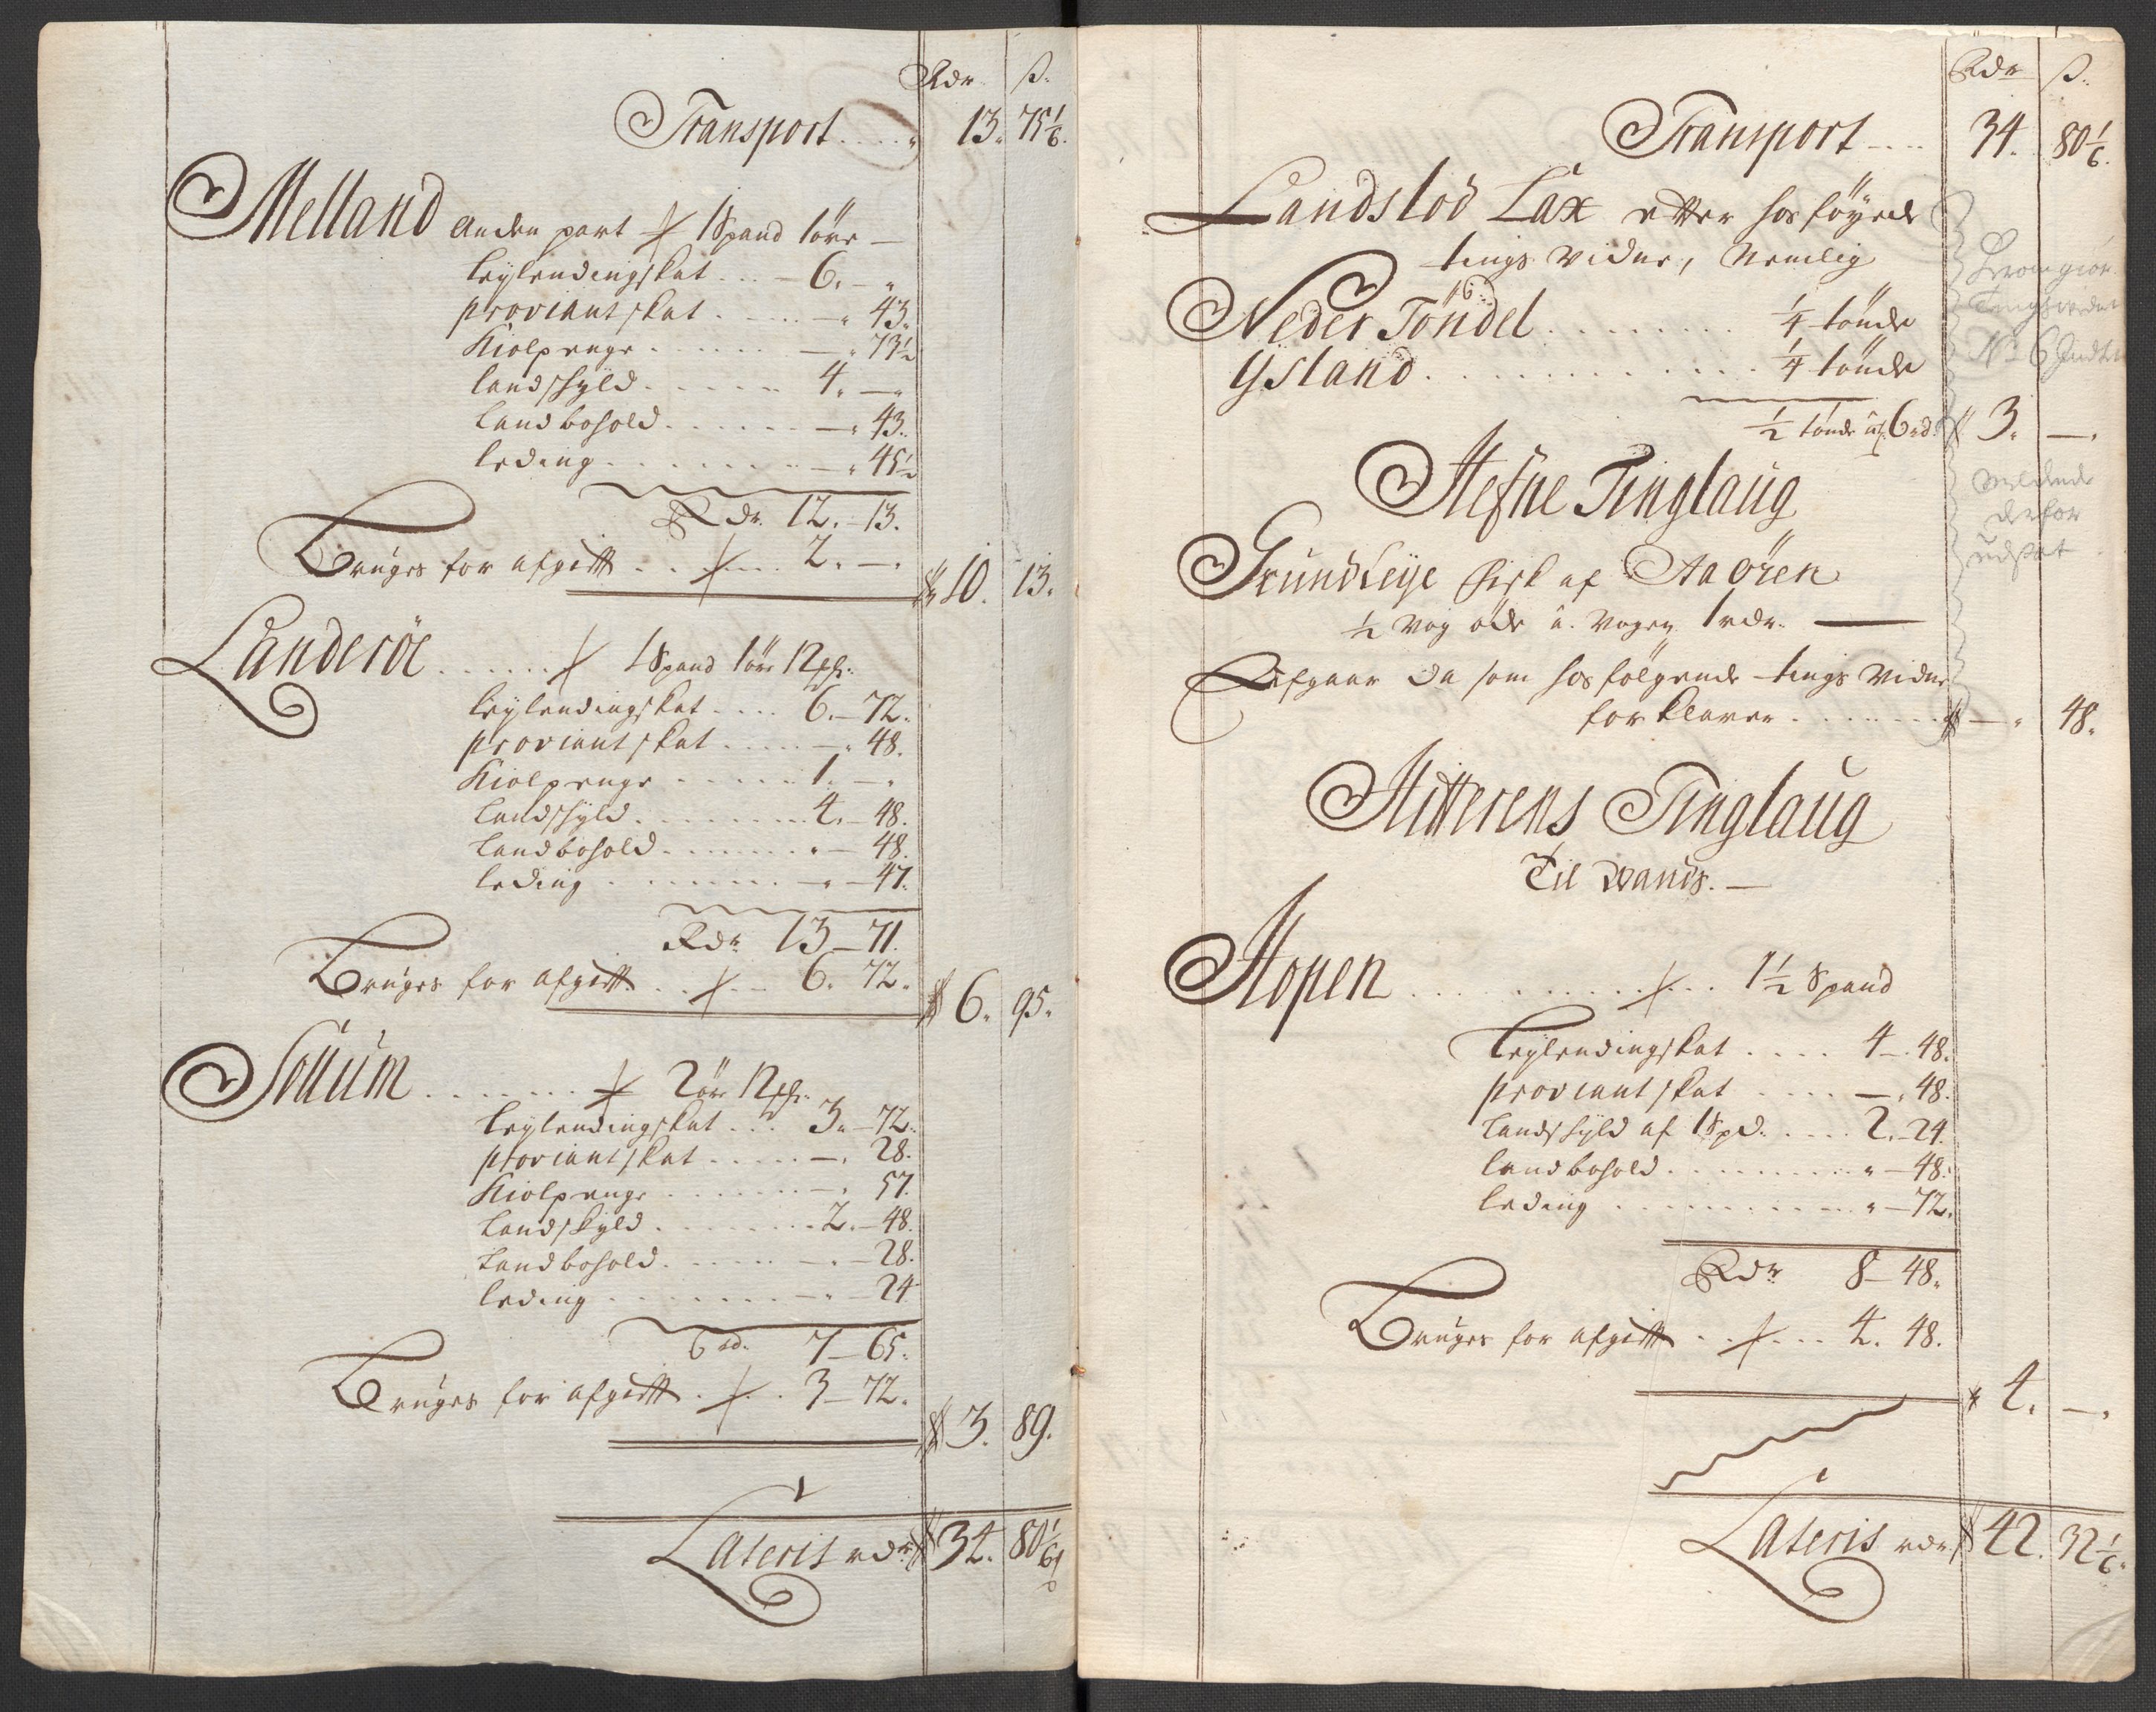 Rdr ß.
Transport . . . . 13. 75 1/6.
Melland Anden part 1 Spand 1 öre
leylendingskat . . . 6. –
proviantskat . . . . – 43.
Holpenge . . . . – 73 1/2
landskyld . . . . 4. –
Landbohold . . . . – 43.
leding . . . . – 45 1/2
Rdr. 12. – 13.
Bruges for afgifft . . . 2. –
10. 13.
Landeröe . . . . 1 Spand 1 öre 12
leylendingskat . . . 6. – 72.
proviantskat . . . . – 48.
Holpenge . . . . 1. –
Landskyld . . . . 4. – 48.
Landbohold . . . . – 48.
leding . . . . – 47.
Rdr 13 – 71.
Bruges for afgifft . . . 6. 72.
6. 95.
Sollum . . . . 2 öre 12
leylendingskat . . . 3. – 72.
proviantskat . . . . – 28.
Holpenge . . . . – 57.
Landskyld . . . . 2. – 48.
Landbohold . . . . – 28.
leding . . . . – 24
7 – 65.
Bruges for afgifft . . . 3 – 72.
3. 89.
Lateris rdr 34. 80 1/6
Rdr ß.
Transport . . . . 34. 80 1/6.
Landslod Lax etter hosföyede
tings vidne, Nemlig
Neder Töndel . . . . 1/4 tönde
Ysland . . . . 1/4 tönde
1/2 tönde 6 rd. 3. –
No 6
derfor
udsat
Hefne Tinglaug
Grundleye Fisk af Aaören
1/2 Vog öde a. Vogen 1 rdr. –
Afgaar da som hosfölgende tings vidne
forklarer . . . . – 48.
Hitterens Tinglaug
Til Wands. –
Hopen . . . . 1 1/2 Spand
Leylendingskat . . . . 4 – 48.
proviantskat . . . . – 48.
Landskyld af 1 Spd. . . . 2. – 24.
landbohold . . . . – 48.
leding . . . . – 72.
Rdr 8 – 48.
Bruges for afgifft . . . 4. 48.
4. –
Lateris rdr 42. 32 1/6.